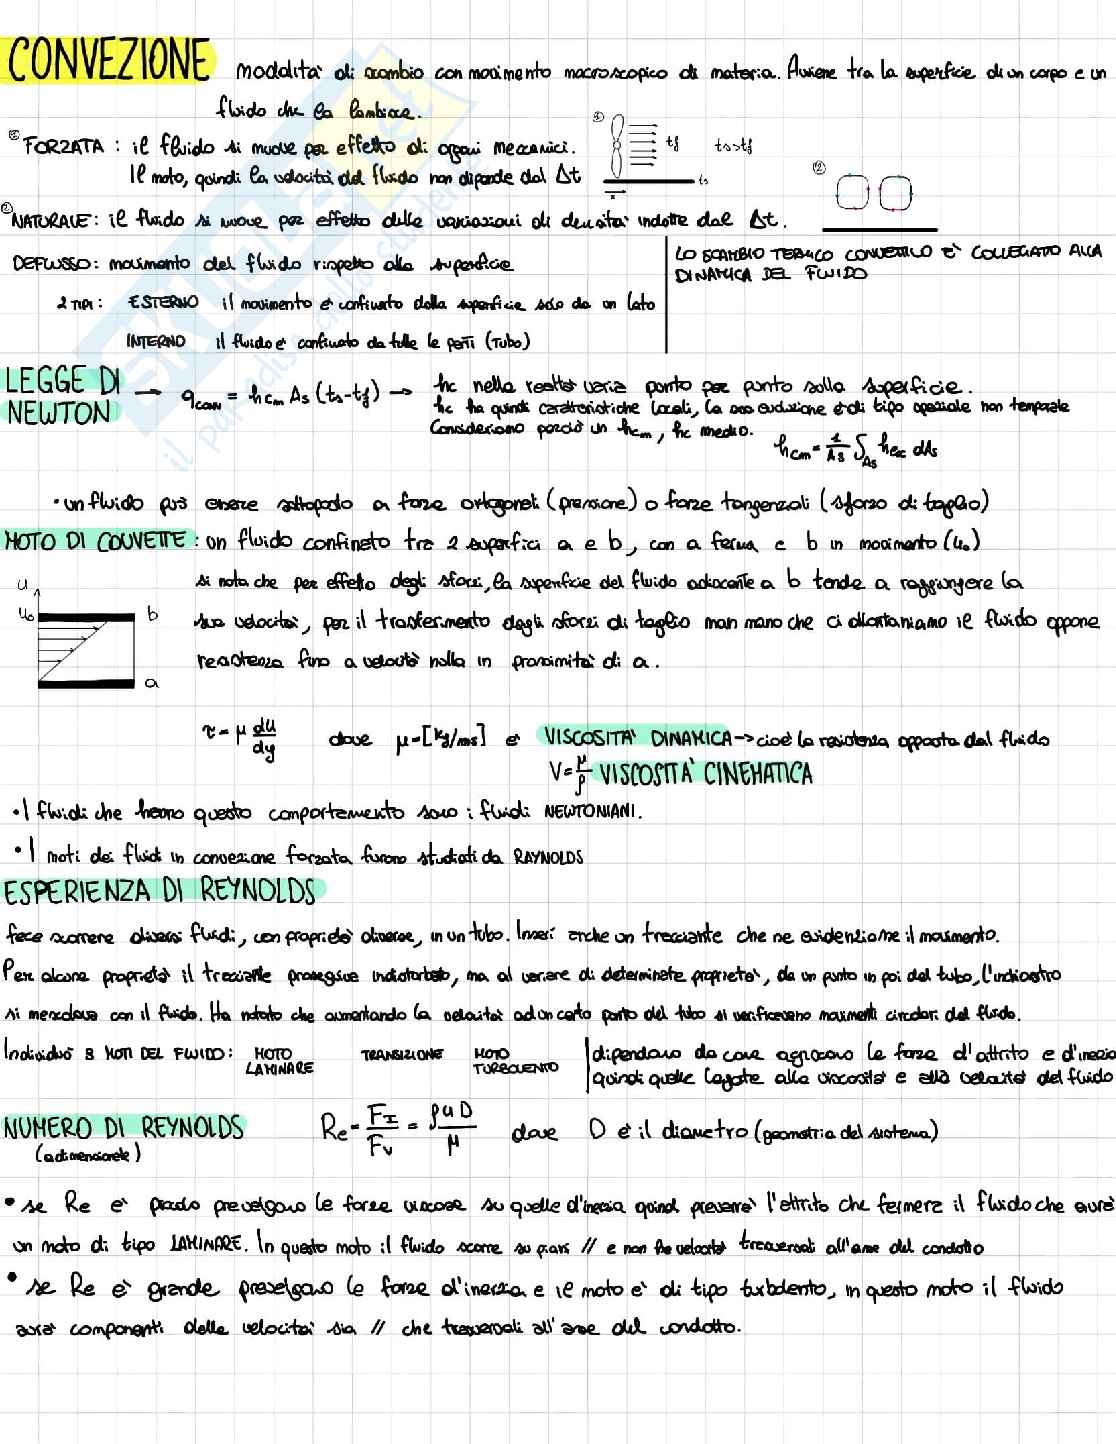 CONVEZIONE modalità di scambio con movimento macroscopico di materia. Avviene tra la superficie di un corpo e un
fluido che la lambisce.
① FORZATA : il fluido si muove per effetto di organi meccanici.
Il moto, quindi la velocità del fluido non dipende dal Δt
① tf ts>tf
ts
②
② NATURALE: il fluido si muove per effetto delle variazioni di densità indotte dal Δt.
DEFLUSSO: movimento del fluido rispetto alla superficie
2 TIPI: ESTERNO il movimento è confinato dalla superficie solo da un lato
INTERNO il fluido è confinato da tutte le parti (TUBO)
LO SCAMBIO TERMICO CONVETTIVO È COLLEGATO ALLA
DINAMICA DEL FLUIDO
LEGGE DI
NEWTON → qconv = hcm As (ts-tf) → hc nella realtà varia punto per punto sulla superficie.
hc ha quindi caratteristiche locali, la sua evoluzione è di tipo spaziale non temporale
Consideriamo perciò un hcm, hc medio.
hcm = 1/As ∫As hcx dAs
• un fluido può essere sottoposto a forze ortogonali (pressione) o forze tangenziali (sforzo di taglio)
MOTO DI COUVETTE : un fluido confinato tra 2 superfici a e b, con a ferma e b in movimento (u₀)
si nota che per effetto degli sforzi, la superficie del fluido adiacente a b tende a raggiungere la
sua velocità, per il trasferimento degli sforzi di taglio man mano che ci allontaniamo il fluido oppone
resistenza fino a velocità nulla in prossimità di a.
u
u₀ b
a
τ = μ du/dy dove μ=[kg/ms] è VISCOSITA' DINAMICA → cioè la resistenza opposta dal fluido
V = μ/ρ VISCOSITA' CINEMATICA
• I fluidi che hanno questo comportamento sono i fluidi NEWTONIANI.
• I moti dei fluidi in convezione forzata furono studiati da RAYNOLDS
ESPERIENZA DI REYNOLDS
fece scorrere diversi fluidi, con proprietà diverse, in un tubo. Inserì anche un tracciante che ne evidenziasse il movimento.
Per alcune proprietà il tracciante proseguiva indisturbato, ma al variare di determinate proprietà, da un punto in poi del tubo, l'inchiostro
si mescolava con il fluido. Ha notato che aumentando la velocità ad un certo punto del tubo si verificavano movimenti circolari del fluido.
Individuò 3 MOTI DEL FLUIDO: MOTO LAMINARE TRANSIZIONE MOTO TURBOLENTO
dipendono da come agiscono le forze d'attrito e d'inerzia
quindi quelle legate alla viscosità e alla velocità del fluido
NUMERO DI REYNOLDS Re = FI/Fv = ρuD/μ dove D è il diametro (geometria del sistema)
(adimensionale)
• se Re è piccolo prevalgono le forze viscose su quelle d'inerzia quindi prevarrà l'attrito che fermerà il fluido che avrà
un moto di tipo LAMINARE. In questo moto il fluido scorre su piani // e non ha velocità trasversali all'asse del condotto
• se Re è grande prevalgono le forze d'inerzia e il moto è di tipo turbolento, in questo moto il fluido
avrà componenti della velocità sia // che trasversali all'asse del condotto.